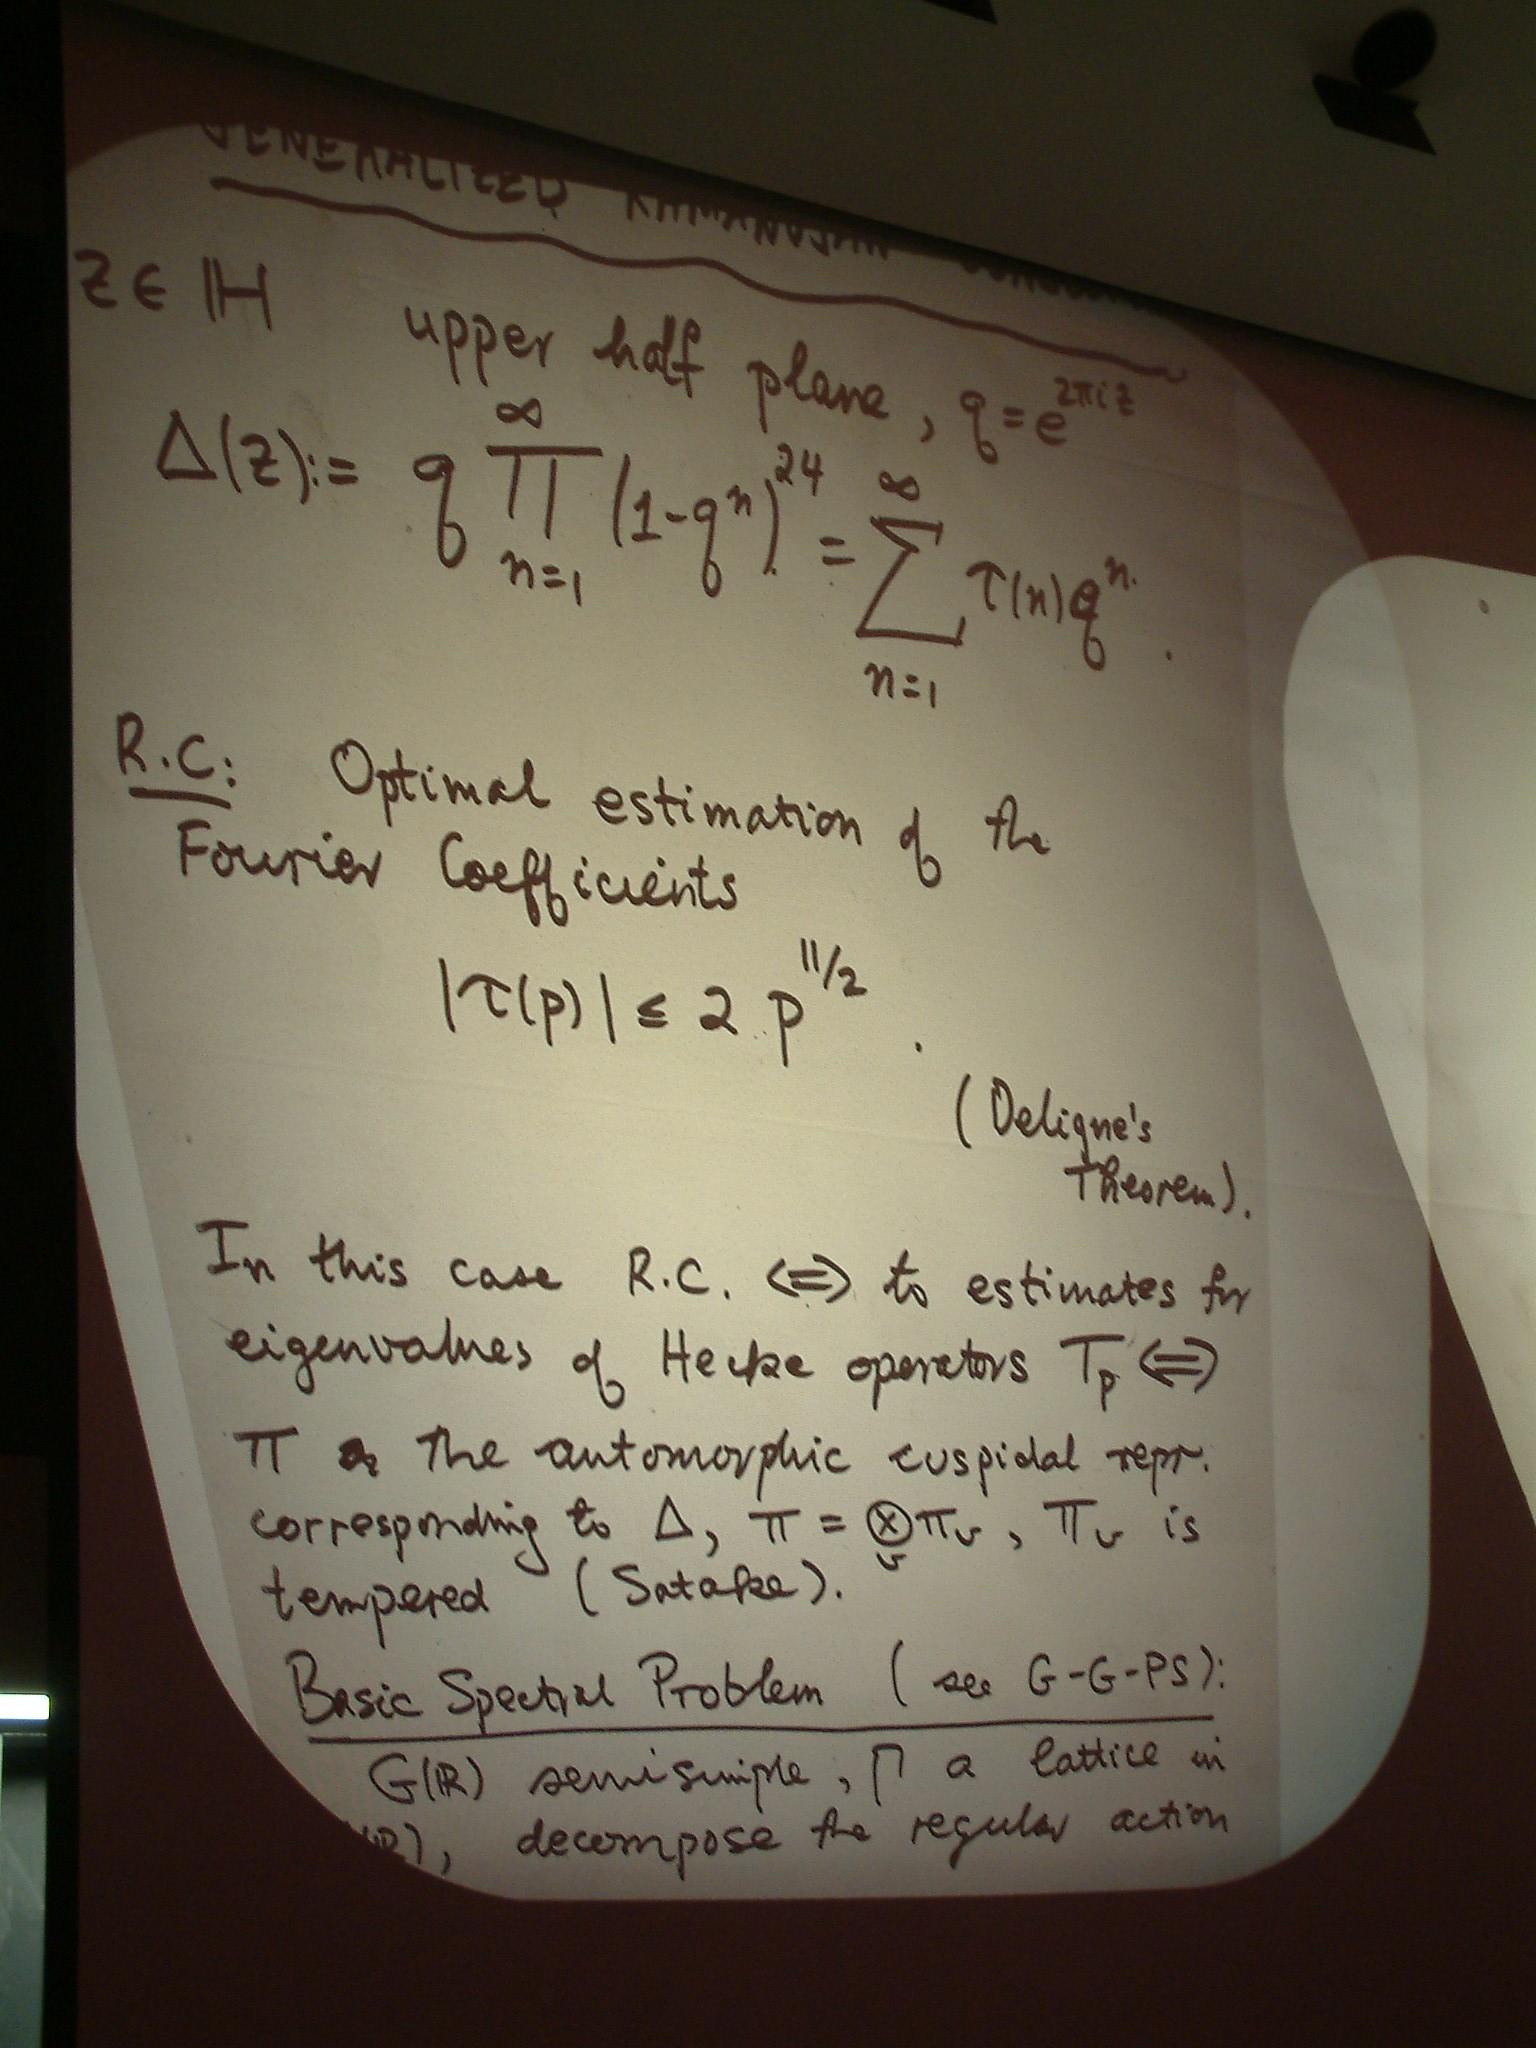 GENERALIZED RAMANUJAN
z ∈ ℍ upper half plane, q = e^{2πiz}
Δ(z) := q ∏_{n=1}^{∞} (1-q^n)^{24} = ∑_{n=1}^{∞} τ(n)q^n.
R.C: Optimal estimation of the
Fourier Coefficients
|τ(p)| ≤ 2 p^{11/2}.
(Deligne's
Theorem).
In this case R.C. ⟺ to estimates for
eigenvalues of Hecke operators T_p ⟺
π the automorphic cuspidal repr.
corresponding to Δ, π = ⊗_v π_v, π_v is
tempered (Satake).
Basic Spectral Problem (see G-G-PS):
G(ℝ) semisimple, Γ a lattice in
decompose the regular action